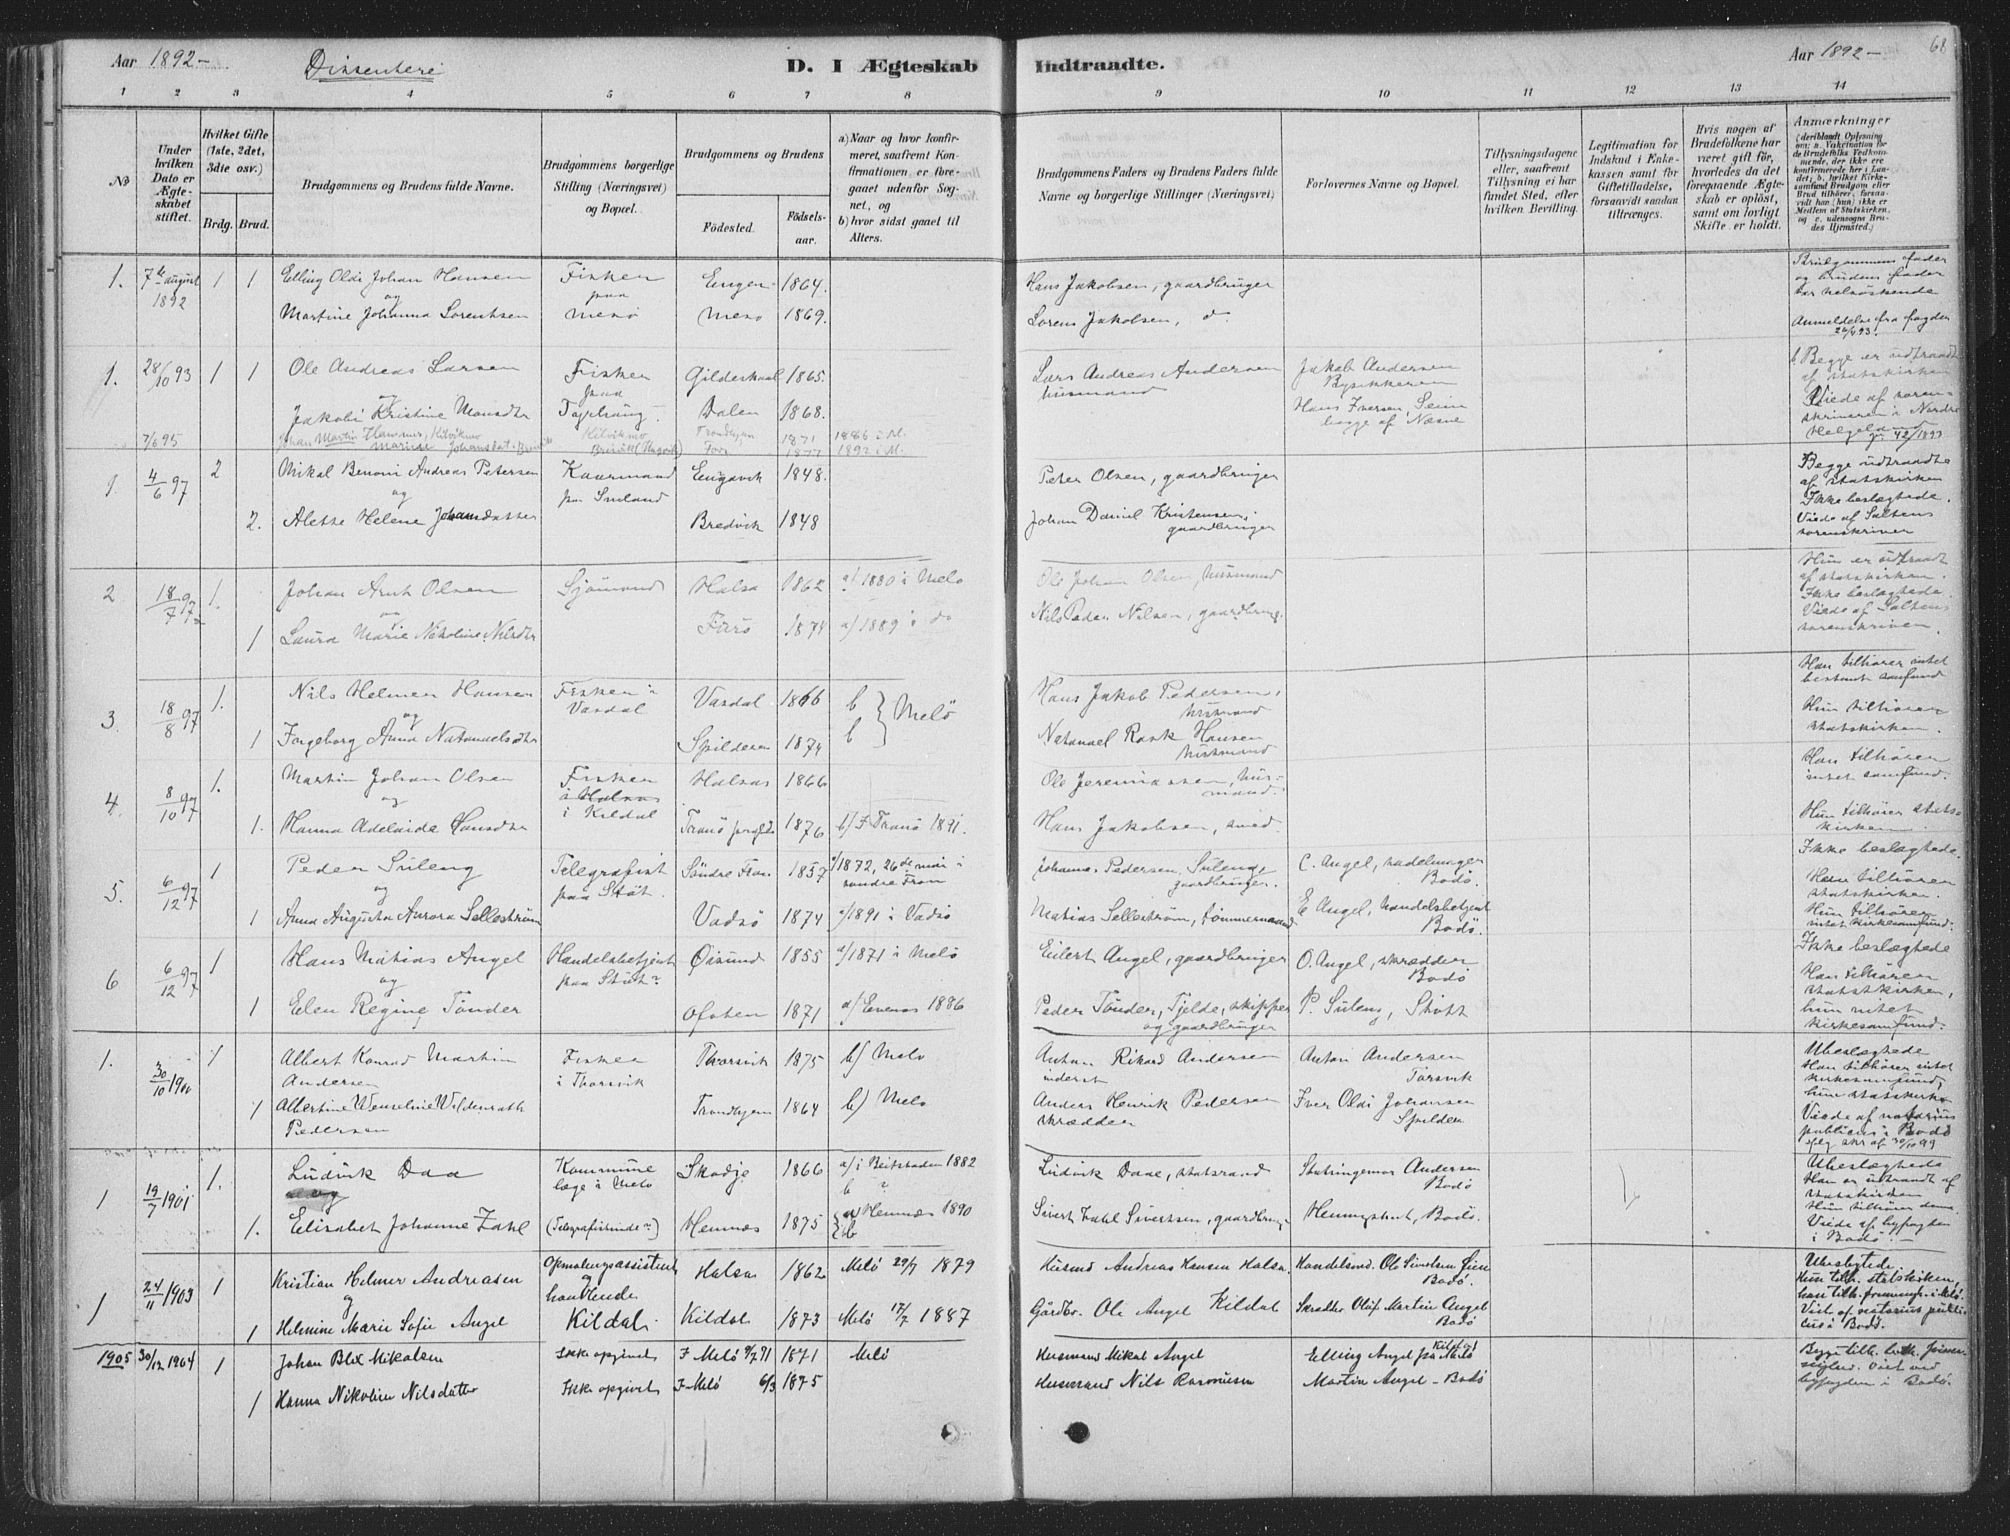 Aar 1892-
Dissentere
D. I Ægteskab Indtraadte.
Aar 1892-
68
1 2 3 4 5 6 7 8 9 10 11 12 13 14
No
Under hvilken Dato er Ægteskabet stiftet.
Hvilket Gifte (1ste, 2det, 3die osv.)
Brdg. Brud.
Brudgommens og Brudens fulde Navne.
Brudgommens borgerlige Stilling (Næringsvei) og Bopæl.
Brudgommens og Brudens
Fødested. Fødselsaar.
a) Naar og hvor konfirmeret, saafremt Konfirmationen er foregaaet udenfor Sognet, og
b) hvor sidst gaaet til Alters.
Brudgommens Faders og Brudens Faders fulde Navne og borgerlige Stillinger (Næringsvei)
Forlovernes Navne og Bopæl.
Tillysningsdagene eller, saafremt Tillysning ei har fundet Sted, efter hvilken Bevilling.
Legitimation for Indskud i Enkekassen samt for Giftetilladelse, forsaavidt saadan tiltrænges.
Hvis nogen af Brudefolkene har været gift før, hvorledes da det foregaaende Ægteskab er opløst, samt om lovligt Skifte er holdt.
Anmærkninger
(deriblandt Oplysning om: a. Vakcination for de Brudefolks Vedkommende, der ikke ere konfirmerede her i Landet; b. hvilket Kirkesamfund Brudgom eller Brud tilhører, forsaavidt han (hun) ikke er Medlem af Statskirken, og c. udensogns Brudes Hjemsted.)
1. 7de august 1892 1 1 Elling Oldi Johan Hansen Fisker Engen 1864. Hans Jakobsen, gaardbruger Brudgommens fader og brudens fader
og paa har helsöskende
Martine Johanna Sorentsen Mesö Mesö 1869. Lorens Jakobsen, d Anmeldelse fra fogden 20/4 93.
1. 28/10 93 1 1 Ole Andreas Larsen Fisker Gilderskaal 1865. Lars Andreas Andersen Jakob Andersen b, Begge er udtraadt
og paa husmand af statskirken
Jakobi Kristine Monsdtr Dalen 1868. Hans Iversen, Seines Viede af sorenskriveren i Nordre Helgeland
begge af Næsne 42/1893
7/6 95 Johan Martin Hammer, Kilvikmo Kilvikmo Trondhjem 1871 1886 i M.
1877 1892 i M.
1. 4/6 97 2 Mikal Benoni Andreas Petersen Kaarmand Engavik 1848. Peter Olsen, gaardbruger Begge udtraadte af statskirken
og paa Smland Ikke beslægtede.
2. Alette Helene Johansdatter Bredvik 1848 Johan Daniel Kristensen, gaardbruger Viede af Saltens sorenskriver
2 18/7 97 1. Johan Arnt Olsen Sjömand Halsa 1862 a/ 1880 i Melö Ole Johan Olsen, husmand Hun er udtraadt af statskirken.
og Ikke beslægtede.
1 Laura Marie Nikoline Nilsdtr Farö 1874 a/ 1889 i do Nils Peder Nilsen, gaardbrug. Viede af Saltens sorenskriver.
3 18/8 97 1. Nils Helmer Hansen Fisker i Vasdal Vasdal 1866 b } Melö Hans Jakob Pedersen, husmand Han tilhører intet bestemt samfund
og
1 Ingeborg Anna Natanaelsdtr Spilderen 1874 b Natanael Rask Hansen husmand Hun tilhører statskirken.
4 8/10 97 1. Martin Johan Olsen Fisker Halsas 1866 Ole Jeremiassen, husmand. Han tilhører intet samfund.
og i Kildal
1. Hanna Adelaide Hansdtr Tranö præstg 1876 b/ F Tranö 1891. Hans Jakobsen, smed. Hun tilhører statskirken.
5. 6/12 97 1 Peder Suleng Telegrafist Söndre Fron 1857 a/1872, 26de mai i söndre Fron Johannes Pedersen, Sulenge gaardbruger. C. Angel, sadelmager Bodø. Ikke beslægtede.
og paa Støt. Han tilhører statskirken.
1 Anna Augusta Aurora Sellestrøm Vadsö 1874 a/1891 i Vadsö Matias Sellestrøm, tömmermand E Angel, handelsbetjent Bodø. Hun tilhører intet kirkesamfund.
6 6/12 97 1 Hans Matias Angel Handelsbetjent Öisund 1855 a/1871 i Melö Eilert Angel, gaardbruger O. Angel, skrædder Bodø Ikke beslægtede
og paa Støt Han tilhører statskirken,
1 Elen Regine Tönder Ofoten 1871 a/ Evenes 1886 Peder Tönder, Tjelde, skipper og gaardbruger P. Suleng, Støtt hun intet kirkesamfund.
1. 30/10 1900 1 Albert Konrad Martin Andersen Fisker i Thorsvik Thorsvik 1875 b/ Melö Anton Rikard Andersen inderst Anton Andersen Torsvik Ubeslægtede
Han tilhører intet kirkesamfund, hun statskirken
1 Albertine Wenseline Wildenrath Pedersen Trondhjem 1864 b/ Melö Anders Henrik Pedersen skrædder Iver Oldi Johansen Spilder Viede af notarius publicus i Bodö iflg skr af 30/10 99
1 19/7 1901 1. Ludvik Daa Kommunelæge i Melö Skodje 1866 a/ i Beitstaden 1882 Ludvik Daae, statsraad Andersen Bodö Ubeslægtede
og b ? Han er udtraadt af statskirken
1. Elisabet Johanne Zahl (Telegrafistinde?) Hemnæs 1875 a Hemnæs 1890 Sivert Zahl Sivertsen, gaardbrug Bodö. Hun tilhører denne.
b Viede af byfogden i Bodø.
1 24/11 1903 1 Kristian Helmer Andreasen Opmalingsassistent Halsa 1862 Melö 29/7 1879 Husmd Andreas Hansen Halsa. Handelsmd. Ole Sivertsen Bodö. Ubeslegtede.
og og handlende Hun tilh. statskirken,
1 Helmine Marie Sofie Angel Kildal Kildal 1873 Melö 17/7 1887 Gårdbr. Ole Angel Kildal Skrædder Olof Martin Angel Bodö Viet af notarius publicus i Bodö.
1905 30/12 1904 1 Johan Blix Mikalsen Ikke opgivet F Melö 9/7 71 1871 Melö Husmand Mikal Angel Elling Angel på Melö Kildal
1 Hanna Nikoline Nilsdatter Ikke opgivet F Melö 6/3 1875 Husmand Nils Rasmussen Martin Angel - Bodö Viet ved byfogden i Bodö.